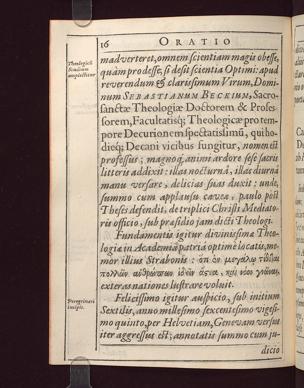 16 ORATIO
Theologicū
Studium
amplectitur
madverteret, omnem scientiam magis obesse,
quàm prodesse, si desit scientia Optimi: apud
reverendum & clarissimum Virum, Domi-
num SEBASTIANUM BECKIUM, Sacro-
sanctæ Theologiæ Doctorem & Profes-
sorem, Facultatisq; Theologicæ pro tem-
pore Decurionem spectatissimū, qui ho-
dieq; Decani vicibus fungitur, nomen est
professus; magnoq; animi ardore sese sacris
litteris addixit: illas nocturnâ, illas diurnâ
manu versare, delicias suas duxit: unde,
summo cum applausu cavea, paulò pòst
Theses defendit, de triplici Christi Mediato-
ris officio, sub præsidio jam dicti Theologi.
Fundamentis igitur divinissimæ Theo-
logiæ in Academiâ patriâ optimè locatis, me-
mor illius Strabonis:
exteras nationes lustrare voluit.
Peregrinari
incipit.
Felicissimo igitur auspicio, sub initium
Sextilis, anno millesimo sexcentesimo vigesi-
mo quinto, per Helvetiam, Genevam versus
iter aggressus est; annotatis summo cum ju-
dicio